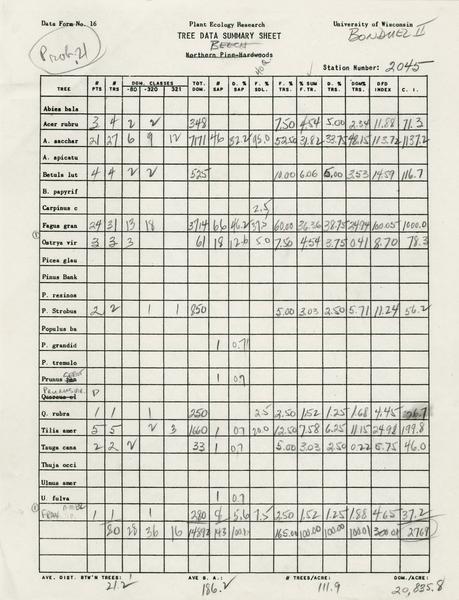 Data Form-No. 16 Plant Ecology Research University of Wisconsin
TREE DATA SUMMARY SHEET BONDUEL II
Prob. 21 BEECH
Northern Pine-Hardwoods
Station Number: 2045
TREE # PTS # TRS DOM. CLASSES -80 -320 321 TOT. DOM. # SAP D. % SAP F. % SDL. F. % TRS. % SUM F.TR. D. % TRS. DOM% TRS. DFD INDEX C. I.
Abies bala
Acer rubru 3 4 2 2 348 7.50 4.54 5.00 2.34 11.88 71.3
A. sacchar 21 27 6 9 12 7171 46 32.2 95.0 52.50 31.82 33.75 48.15 113.72 1137.2
A. spicatu
Betula lut 4 4 2 2 525 10.00 6.06 5.00 3.53 14.59 116.7
B. papyrif
Carpinus c 2.5
Fagus gran 24 31 13 18 3714 66 46.2 37.5 60.00 36.36 38.75 24.94 100.05 1000.0
Ostrya vir 3 3 3 61 18 12.6 5.0 7.50 4.54 3.75 0.41 8.70 78.3
Picea glau
Pinus Bank
P. resinos
P. Strobus 2 2 1 1 850 5.00 3.03 2.50 5.71 11.24 56.2
Populus ba
P. grandid 1 0.7
P. tremulo
Prunus 1 0.7
Quercus el P
Q. rubra 1 1 1 250 2.5 2.50 1.52 1.25 1.68 4.45 26.7
Tilia amer 5 5 2 3 1660 1 0.7 20.0 12.50 7.58 6.25 11.15 24.98 199.8
Tsuga cana 2 2 2 33 1 0.7 5.00 3.03 2.50 0.22 5.75 46.0
Thuja occi
Ulmus amer
U. fulva 1 0.7
FRAX. 1 1 1 280 8 5.6 7.5 2.50 1.52 1.25 1.88 4.65 37.2
80 28 36 16 14892 143 100.1 165.00 100.00 100.00 100.01 300.01 2769
AVE. DIST. BTW'N TREES: 21.2 AVE B. A.: 186.2 # TREES/ACRE: 111.9 DOM./ACRE: 20,835.8